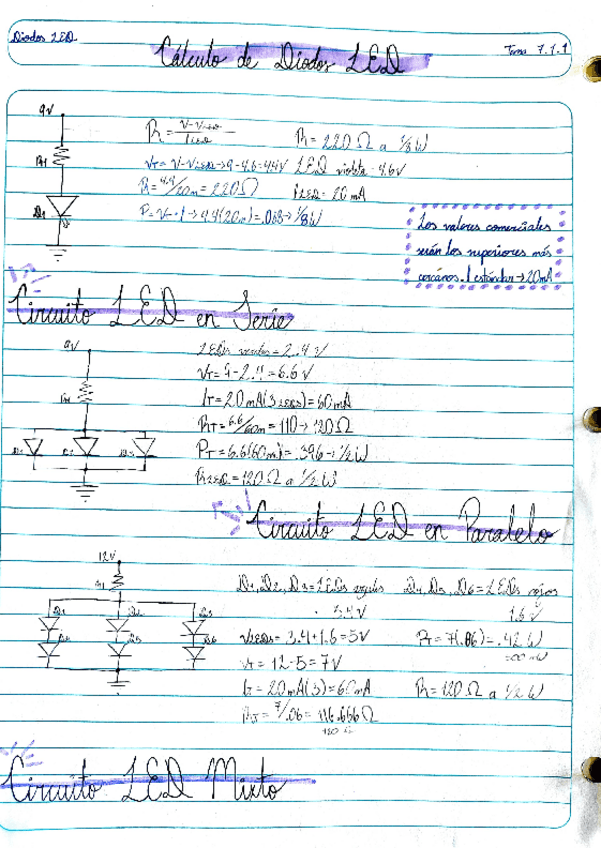 Diodos LED
Tema 7.1.1
Cálculo de Diodos LED
9V
R1
D1
R = V-VLED / ILED
R = 220 Ω a 1/8 W
VT = V-VLED → 9-4.6=4.4V LED violeta = 4.6V
R = 4.4/20m = 220Ω
ILED = 20 mA
P = V · I → 4.4(20m) = .088 → 1/8W
Los valores comerciales
serán los superiores más
cercanos. I estándar → 20mA
Circuito LED en Serie
9V
R1
D1
D2
D3
LEDs verdes = 2.4 V
VT = 9-2.4 = 6.6 V
IT = 20 mA(3 LEDS) = 60 mA
RT = 6.6/60m = 110 → 120 Ω
PT = 6.6(60m) = .396 → 1/2 W
RLED = 120 Ω a 1/2 W
Circuito LED en Paralelo
12V
R1
D1
D2
D3
D5
D6
D1, D2, D3 = LEDs azules
D4, D5, D6 = LEDs rojos
3.4V
1.6 V
VLEDS = 3.4+1.6=5V
PT = 7(.06) = .42 W
VT = 12-5 = 7V
IT = 20 mA(3) = 60mA
R = 120 Ω a 1/2 W
RT = 7/.06 = 116.666 Ω
120 Ω
Circuito LED Mixto